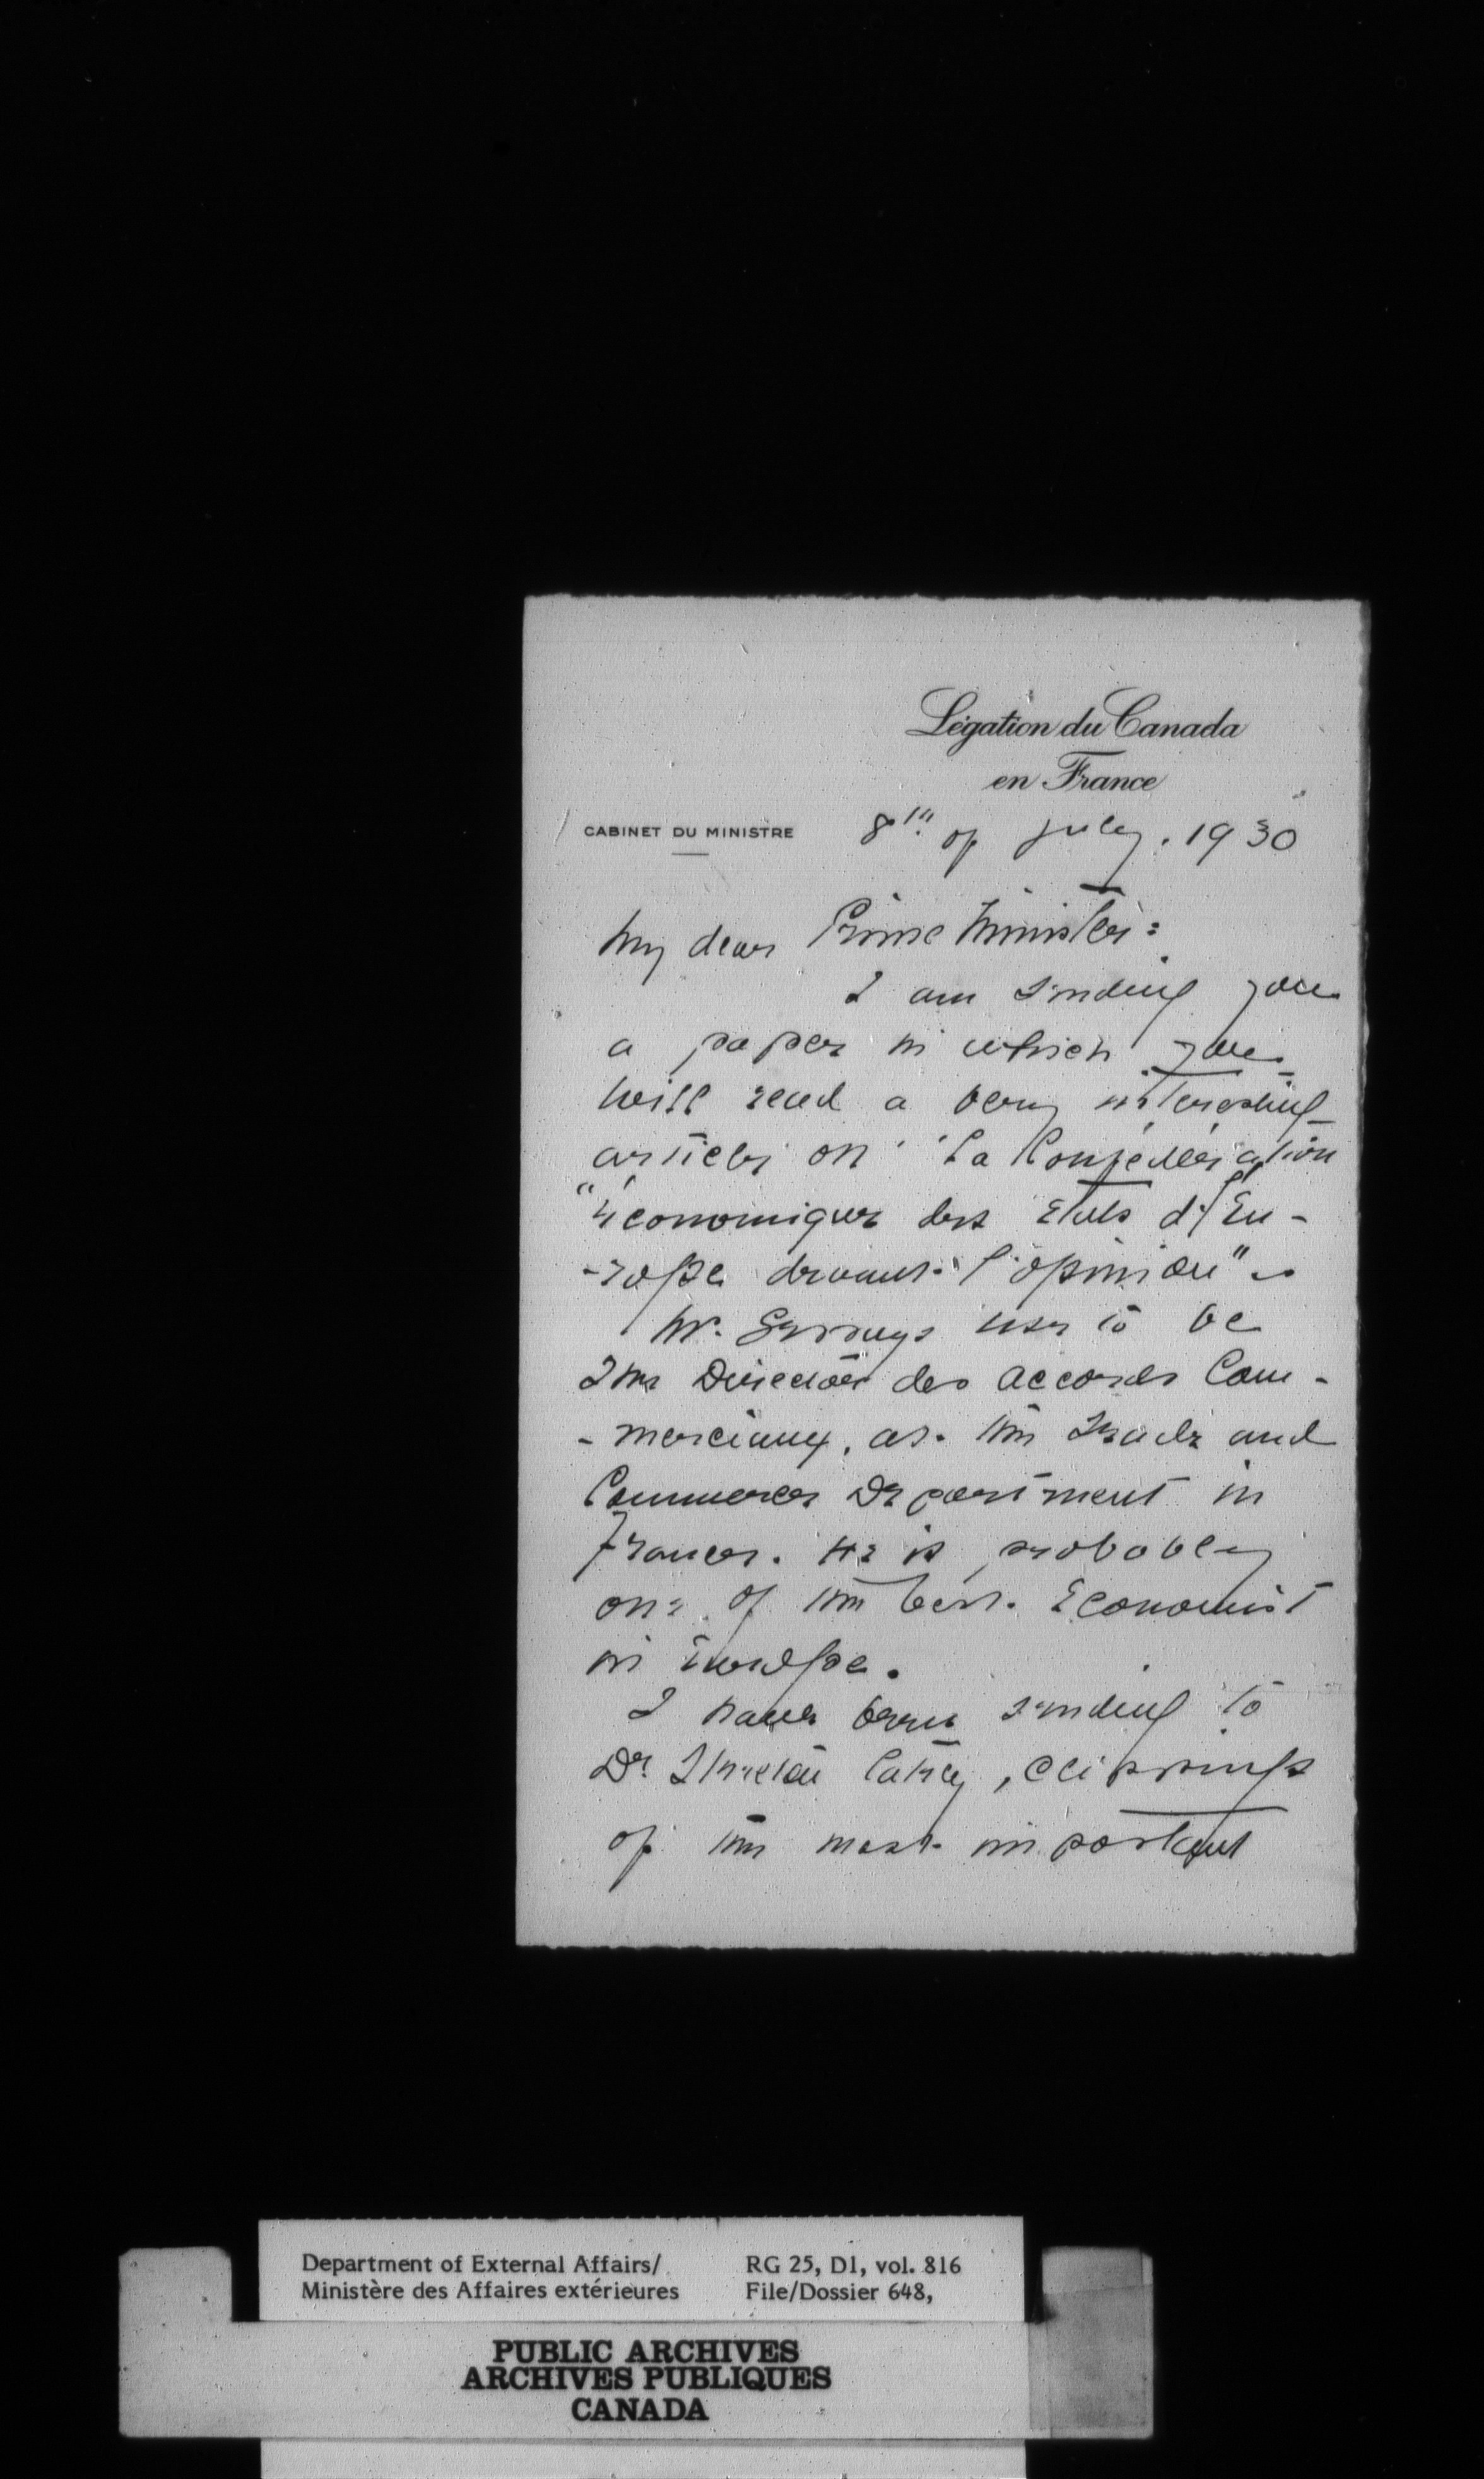 Légation du Canada
en France
CABINET DU MINISTRE
8th of July. 1930
My dear Prime Minister:
I am sending you
a paper in which you
will read a very interesting
article on "La Confédération
"économique des États d'Eu-
-rope devant l'opinion"
Mr. use to be
The Director des accords Com-
-merciaux, at the Trade and
Commerce Department in
France. He is probably
one of the best Economist
in Europe.
I have been sending to
Dr. clippings
of the most important
Department of External Affairs/
Ministère des Affaires extérieures
RG 25, D1, vol. 816
File/Dossier 648,
PUBLIC ARCHIVES
ARCHIVES PUBLIQUES
CANADA